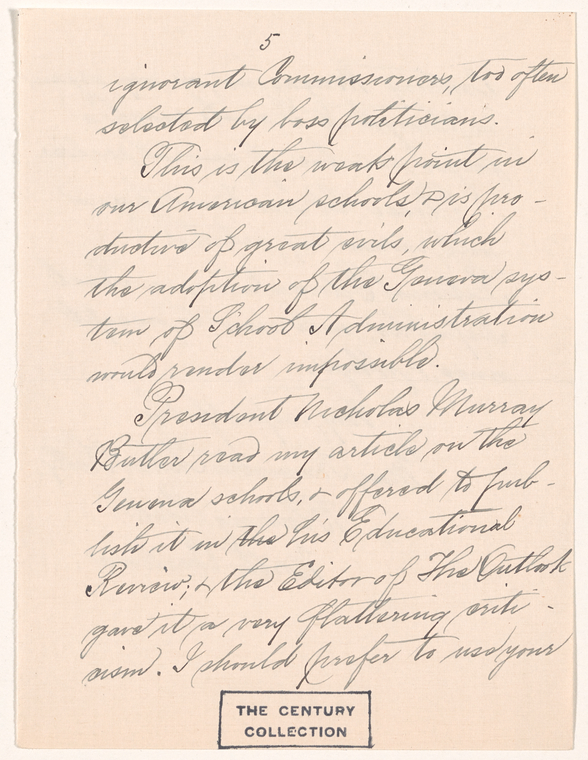 5
ignorant Commissioners, too often
selected by boss politicians.
This is the weak point in
our American schools, & is pro-
ductive of great evils, which
the adoption of the Geneva sys-
tem of School Administration
would render impossible.
President Nicholas Murray
Butler read my article on the
Geneva schools, & offered to pub-
lish it in the his Educational
Review; & the Editor of The Outlook
gave it a very flattering criti-
cism. I should prefer to use your
THE CENTURY
COLLECTION